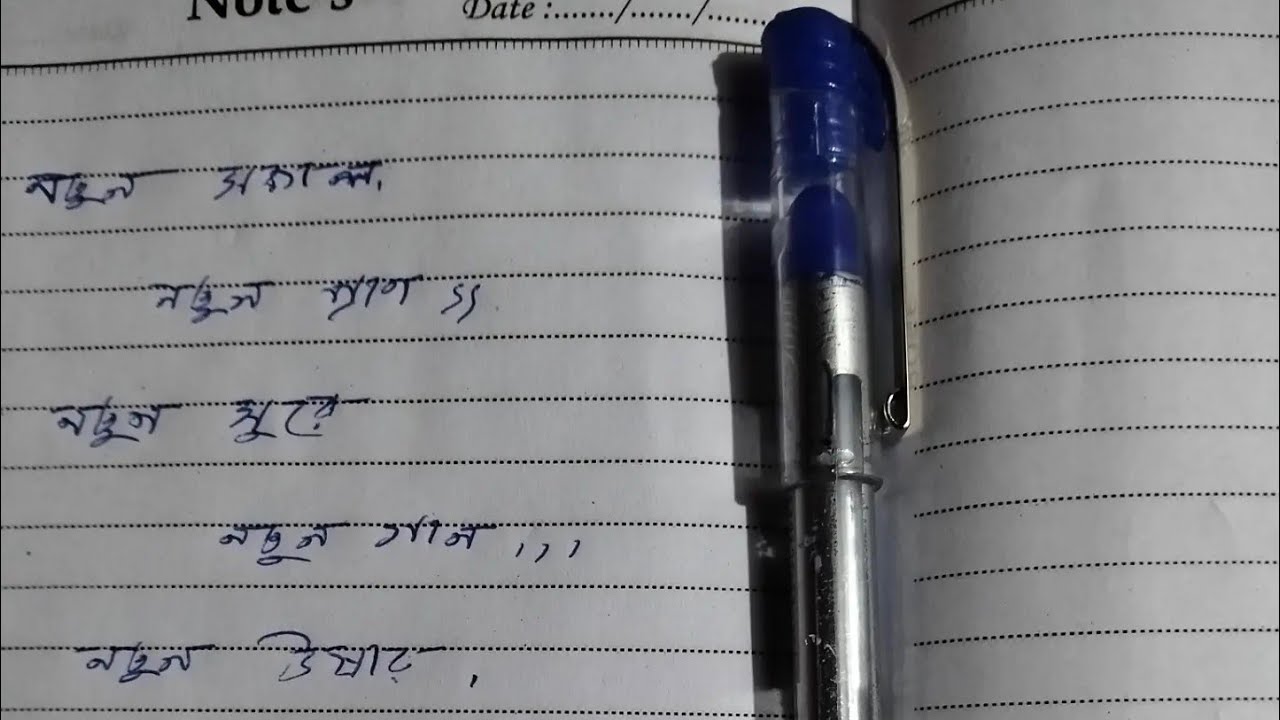 Note's Date :......./......./......
নতুন সকাল,
নতুন প্রাণ ,,
নতুন সুরে
নতুন গান , , ,
নতুন উষার ,